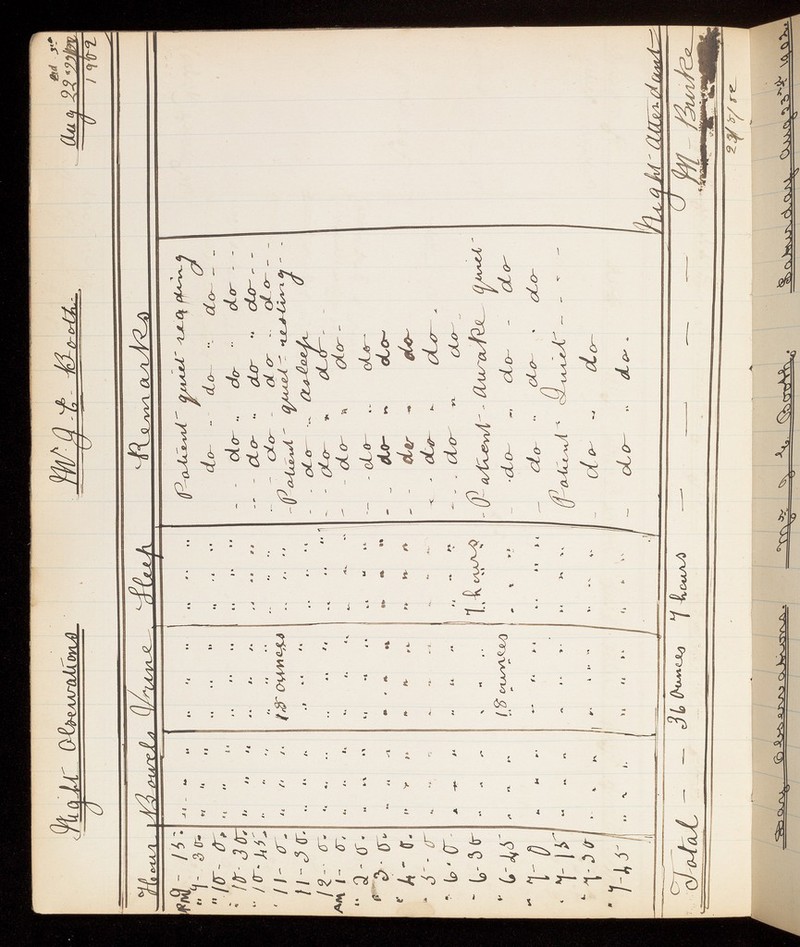 Night Observations Mr. J. E. Booth. Aug 22nd 3rd 1902
Hour Bowels Urine Sleep Remarks
PM 9-15- " " " " " " " " Patient quiet reading
" 9-30- " " " " " " " " do " do " do - -
" 10-0. " " " " " " " " - do " do " do - -
" 10-30. " " " " " " " " - do " do " do - -
" 10-45. " " " " " " " " - do - do " do - -
" 11-0. " " 18 ounces " " " - Patient - quiet - resting - -
11-30. " " " " " " " " - do " asleep
12-0. " " " " " " " " - do " do - -
AM 1-0. " " " " " " " " - do " do -
" 2-0. " " " " " " " " - do " do
" 3-0. " " " " " " " " - do " do
" 4-0. " " " " " " " " - do " do
" 5-0 " " " " " " " " - do " do.
" 6-0. " " " " " " " " - do " do -
" 6-30 " " " " " " 7. hours - Patient - Awake quiet -
" 6-45 " " 18 ounces " " " - do " do - do
" 7-0 " " " " " " " " - do " do " do
" 7-15 " " " " " " " " Patient Quiet - - - -
" 7-30 " " " " " " " " - do " do
" 7-45 " " " " " " " " - do " do.
Night Attendant
Total - - 36 Ounces 7 hours - - - - M - Burke
23/8/02
Day Observations. Mr J E Booth. Saturday Aug 23rd 1902